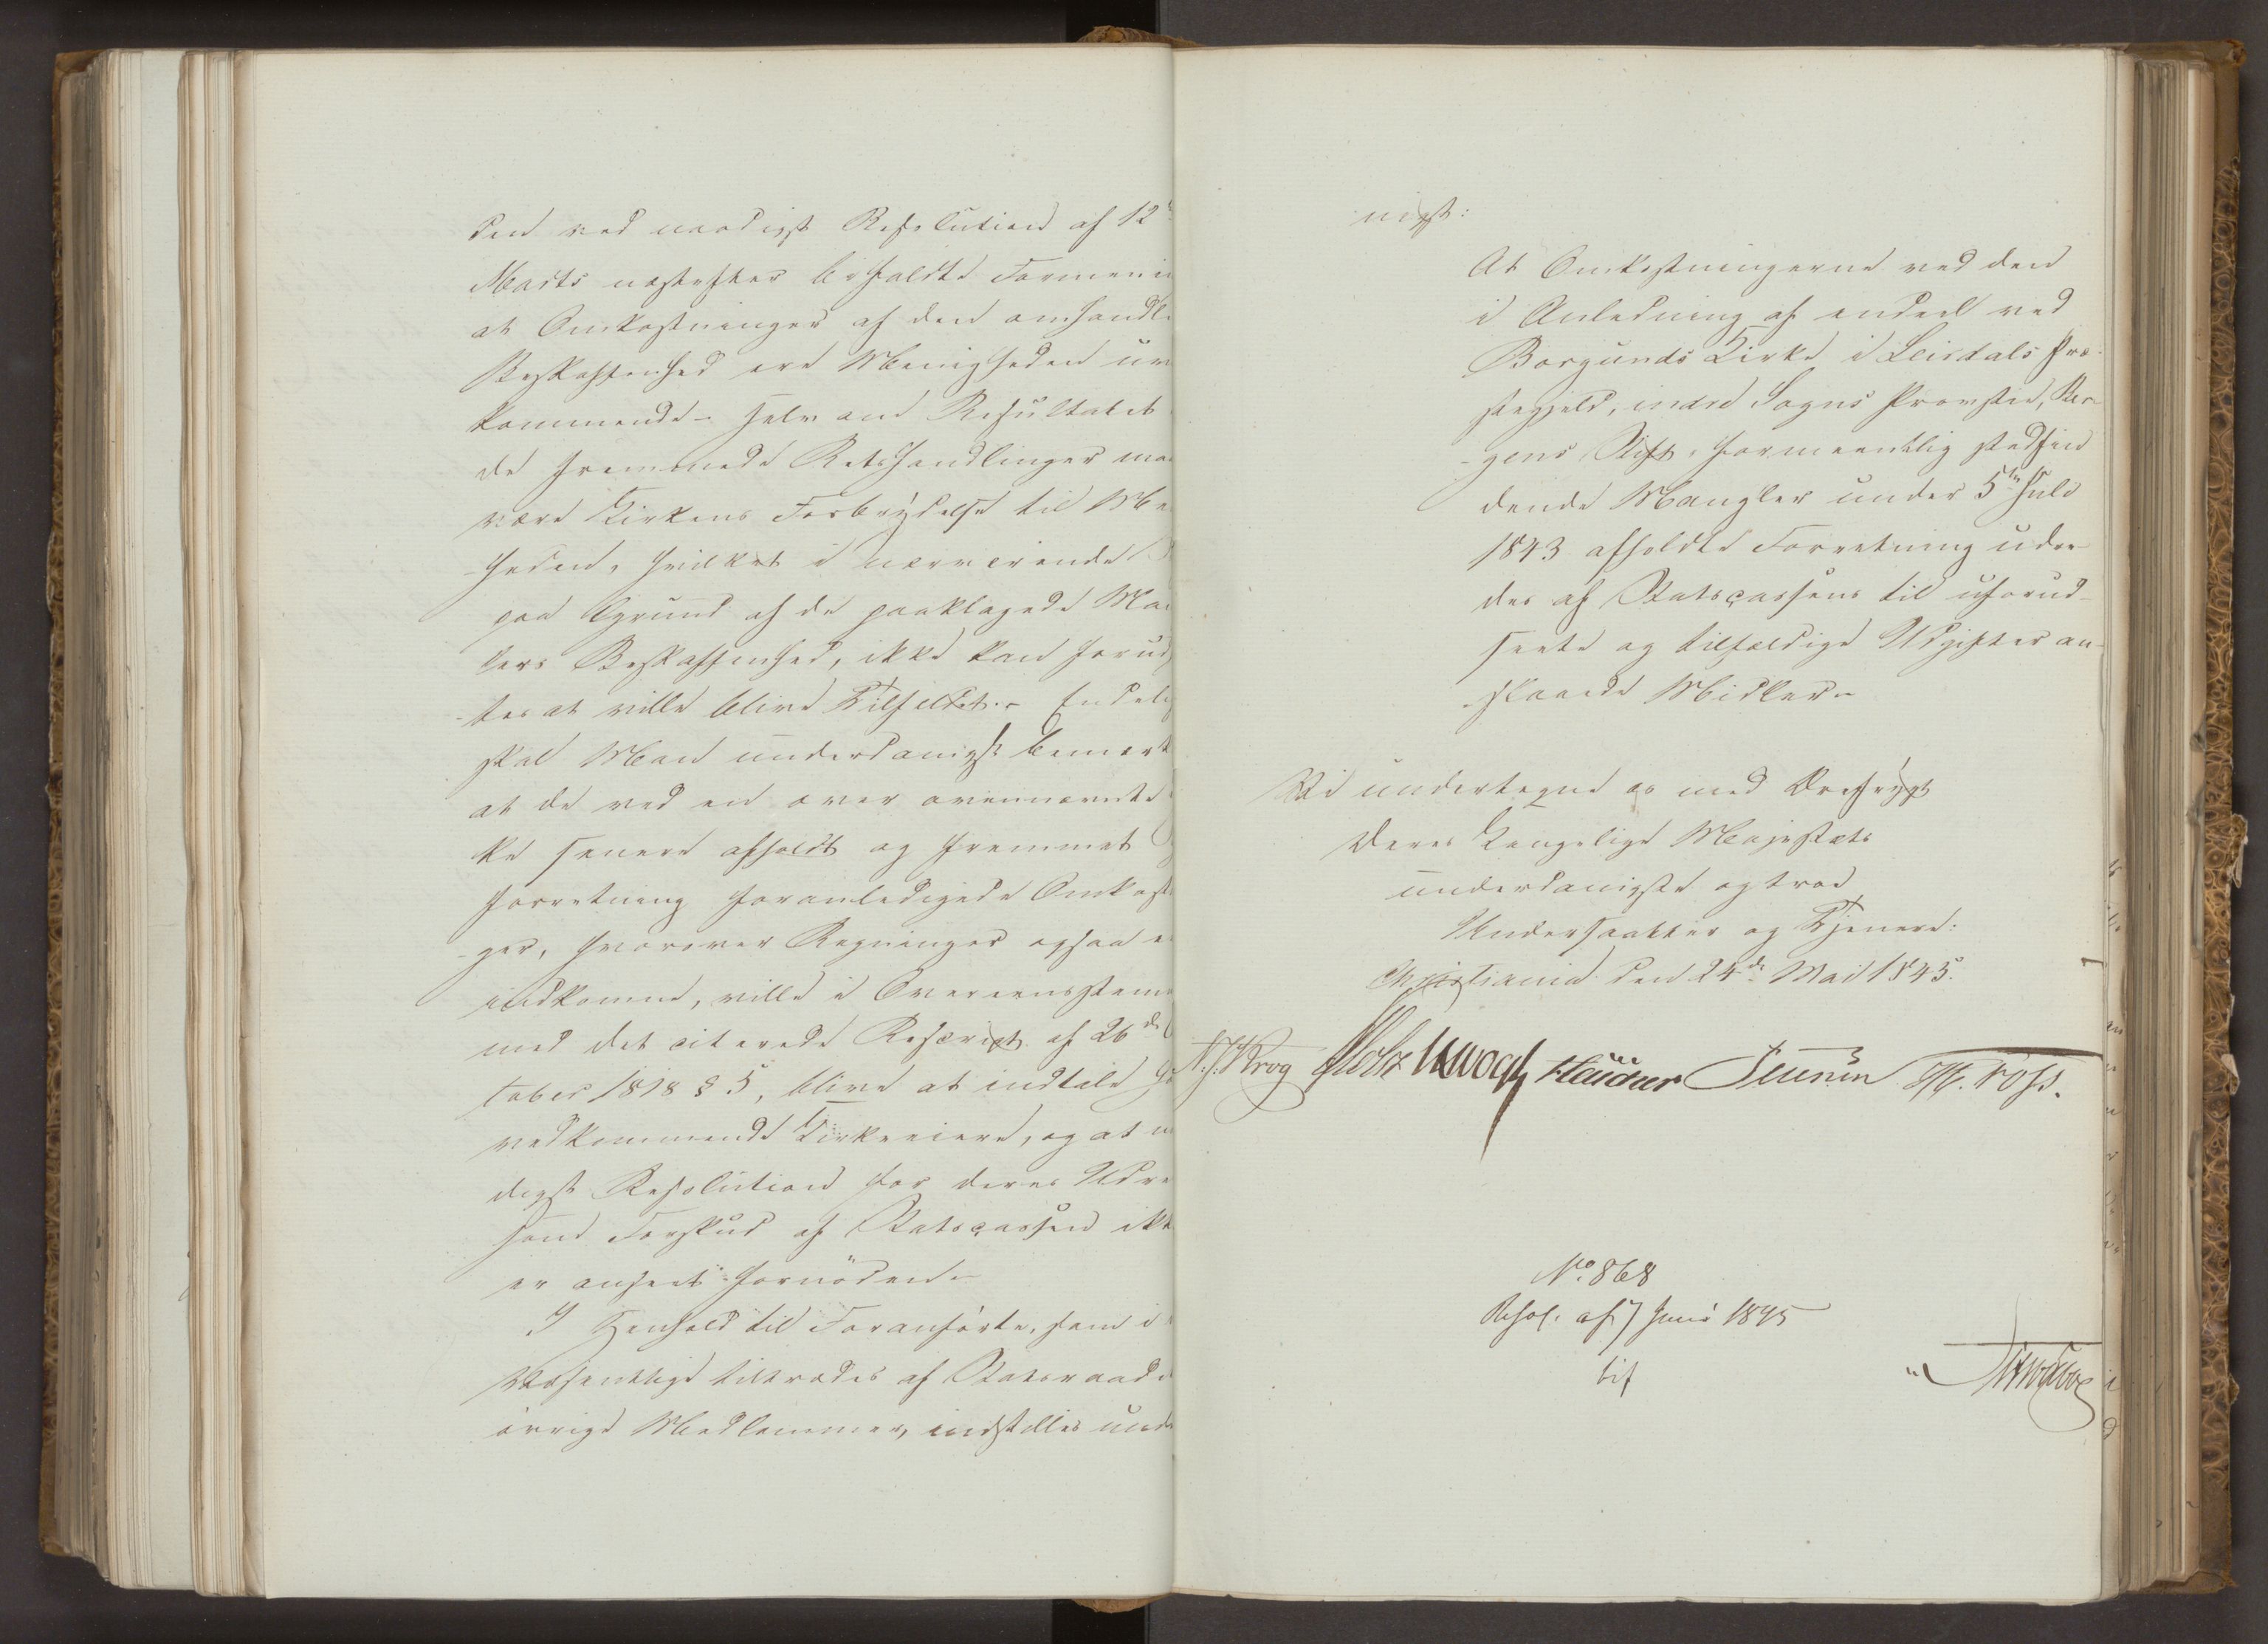 den ved naadigst Resolution af 12te
Marts næstefter befaldte Formenin
at Omkostninger af den omhandl
Beskaffenhed ere Menigheden uv
kommende – selv om Resultatet
de fremmede Retshandlinger maa
være Kirkens Forbrydelse til Me
heden, hvilket i nærværende
paa Grund af de paaklagede Ma
lers Beskaffenhed, ikke kan forud
tes at ville blive Tilfældet. – Endelig
skal Man underdanigst bemærk
at de ved en over ovennævnte
ke senere afholdt og fremmet
forretning foranledigede Omkost
ger, hvorover Regninger ogsaa e
indkomne, ville i Overeensstem
med det citerede Rescript af 26de
tober 1818 § 5, blive at indtale
vedkommende Kirkeeiere, og at n
digst Resolution for deres Udre
som Forskud af Statscassen ikk
er anseet fornöden. –
I Henhold til Foranførte, som i
Væsentlige tiltrædes af Statsraadets
övrige Medlemmer, indstilles unde
nigst:
At Omkostningerne ved den
i Anledning af endeel ved
Borgunds Kirke i Leirdals Præ-
stegjeld, indre Sogns Provstie, Ber-
gens Stift, formeentlig stedfin
dende Mangler under 5te Juli
1843 afholdte Forretning udre-
des af Statscassens til uforud-
seete og tilfældige Udgifter an-
slaaede Midler. –
Vi undertegne os med Ærefrygt
Deres Kongelige Majestæts
underdanigste og troe
Undersaatter og Tjenere:
Christiania den 24de Mai 1845.
N. J. Krog Holst Vogt H. Voss.
No 868
Resol. af 7 Juni 1845